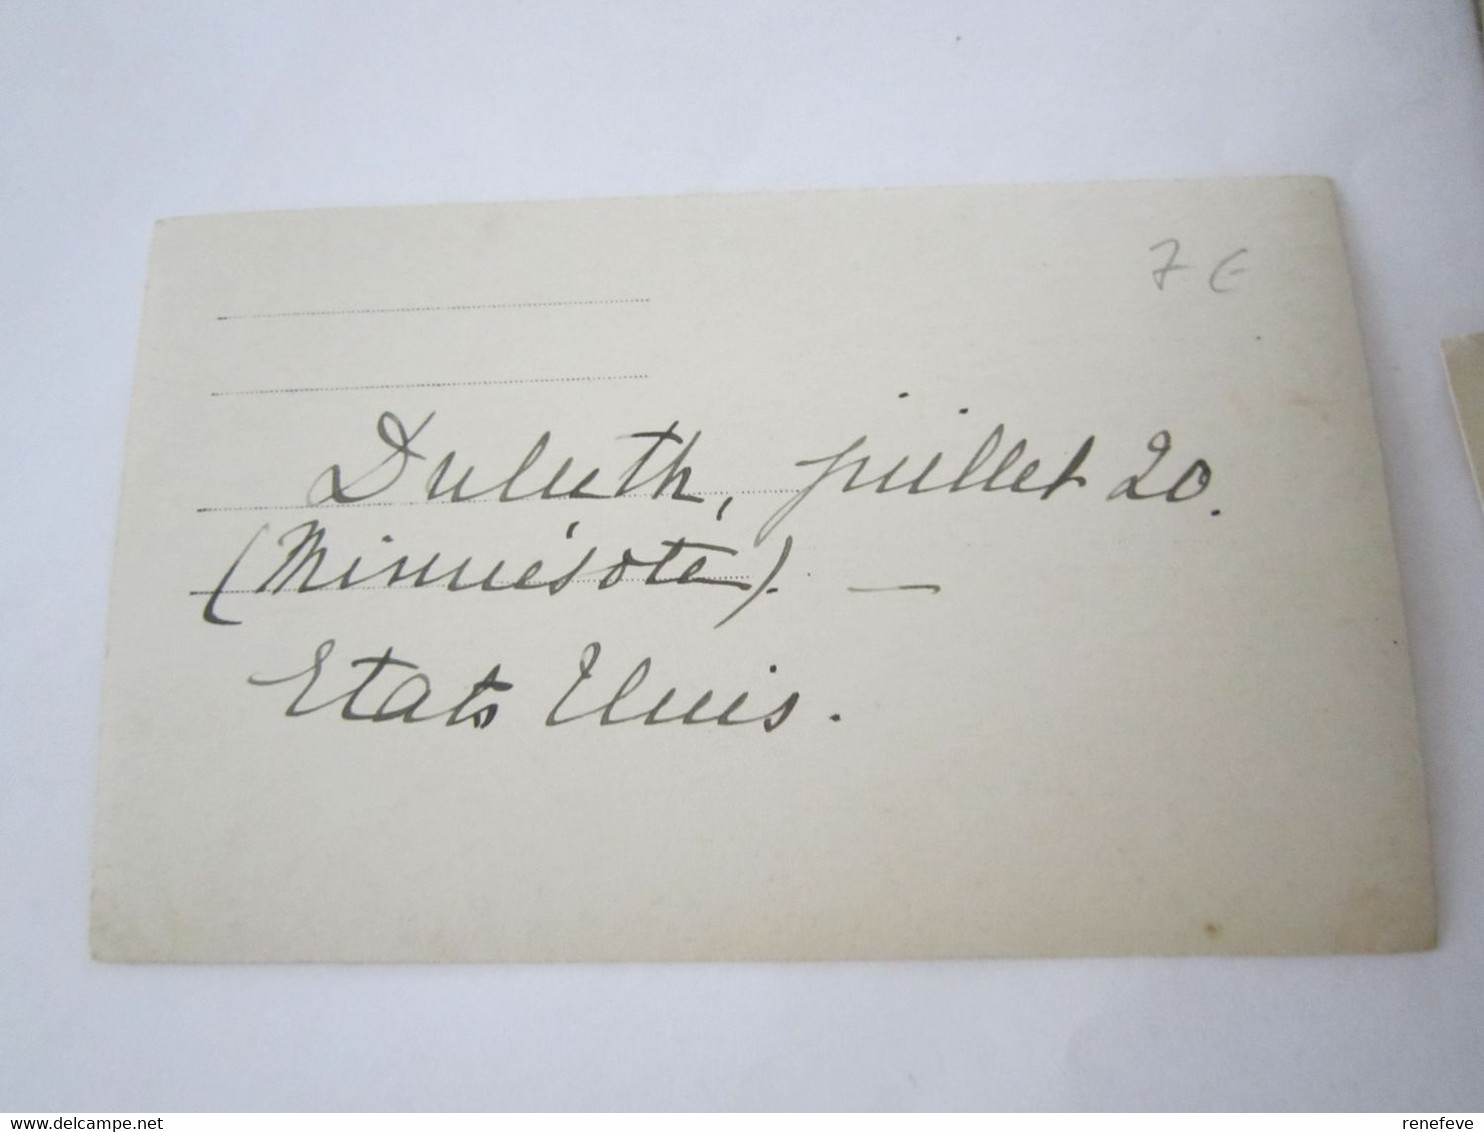 7 €
Duluth, juillet 20.
(Minnésota). —
Etats Unis.
www.delcampe.net
renefeve